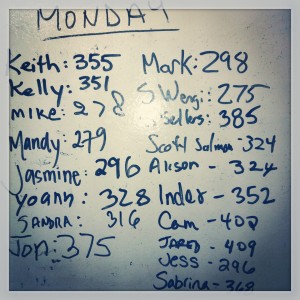 MONDAY
Keith: 355
Kelly: 351
mike: 278
Mandy: 279
Jasmine: 296
yoann: 328
SANDRA: 316
Jon: 375
Mark: 298
S Weng: 275
Sellers: 385
Scott Salmon - 324
Alison - 324
Inder - 352
Cam - 400
JARED - 409
Jess - 296
Sabrina - 368